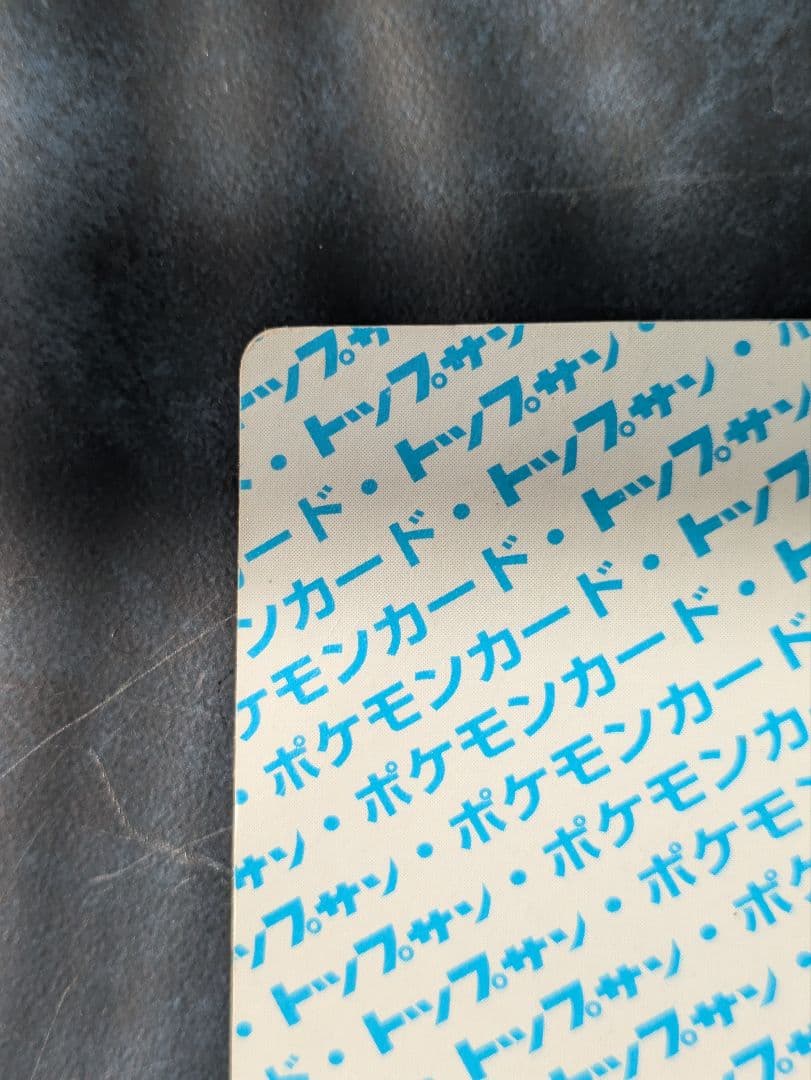 トップサ
・トップサン
ード・トップサン・
ンカード・トップサン・
ケモンカード・トップサン
・ポケモンカード・トップ
サン・ポケモンカード・ト
ップサン・ポケモンカード
・トップサン・ポケモンカ
ド・トップサン・ポケモン
トップサン・ポケ
トップサン・
プサ